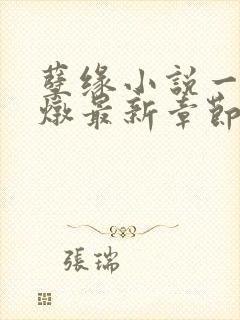 孽缘小說一
燉最新章節
張瑞